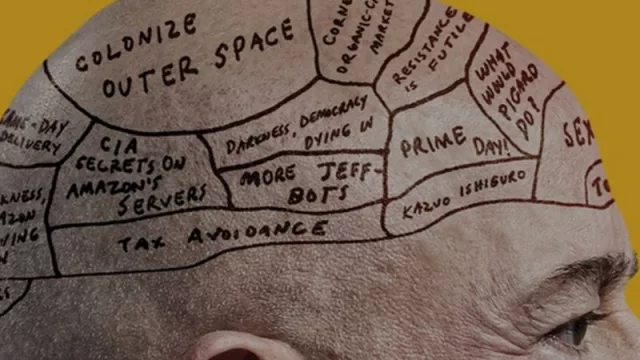 COLONIZE
OUTER SPACE
CORNE
ORGANIC-C
MARKET
RESISTANCE
IS FUTILE
WHAT
WOULD
PICARD
DO?
SEX
DAY
DELIVERY
CIA
SECRETS ON
AMAZON'S
SERVERS
DARKNESS, DEMOCRACY
DYING IN
MORE JEFF-
BOTS
PRIME
DAY!
KAZUO ISHIGURO
TAX AVOIDANCE
KNESS,
AZON
YING
N
TO